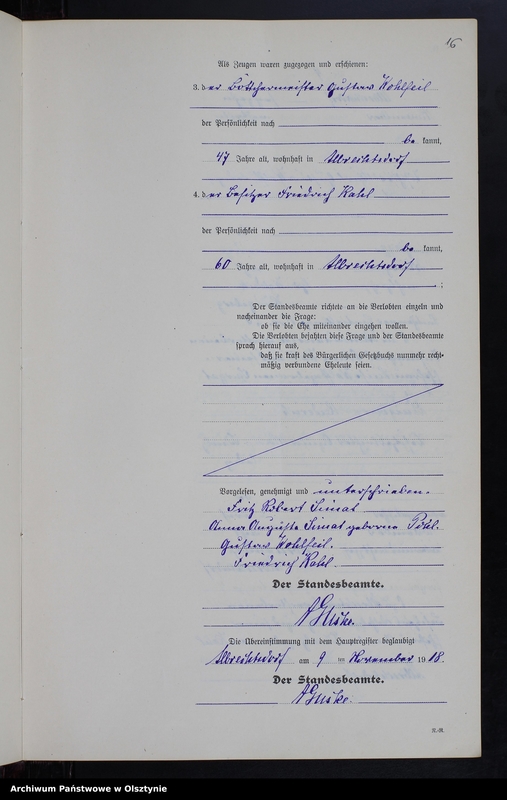 16
Als Zeugen waren zugezogen und erschienen:
3. der Böttchermeister Gustav Wohlfeil
der Persönlichkeit nach
be kannt,
47 Jahre alt, wohnhaft in Albrechtsdorf
4. der Besitzer Friedrich Kahl
der Persönlichkeit nach
be kannt,
60 Jahre alt, wohnhaft in Albrechtsdorf
;
Der Standesbeamte richtete an die Verlobten einzeln und
nacheinander die Frage:
ob sie die Ehe miteinander eingehen wollen.
Die Verlobten bejahten diese Frage und der Standesbeamte
sprach hierauf aus,
daß sie kraft des Bürgerlichen Gesetzbuchs nunmehr recht-
mäßig verbundene Eheleute seien.
Vorgelesen, genehmigt und unterschrieben.
Fritz Robert Simat
Anna Auguste Simat geborne Pohl.
Gustav Wohlfeil.
Friedrich Kahl.
Der Standesbeamte.
Die Übereinstimmung mit dem Hauptregister beglaubigt
Albrechtsdorf am 9 ten November 1918.
Der Standesbeamte.
R.-M.
Archiwum Państwowe w Olsztynie